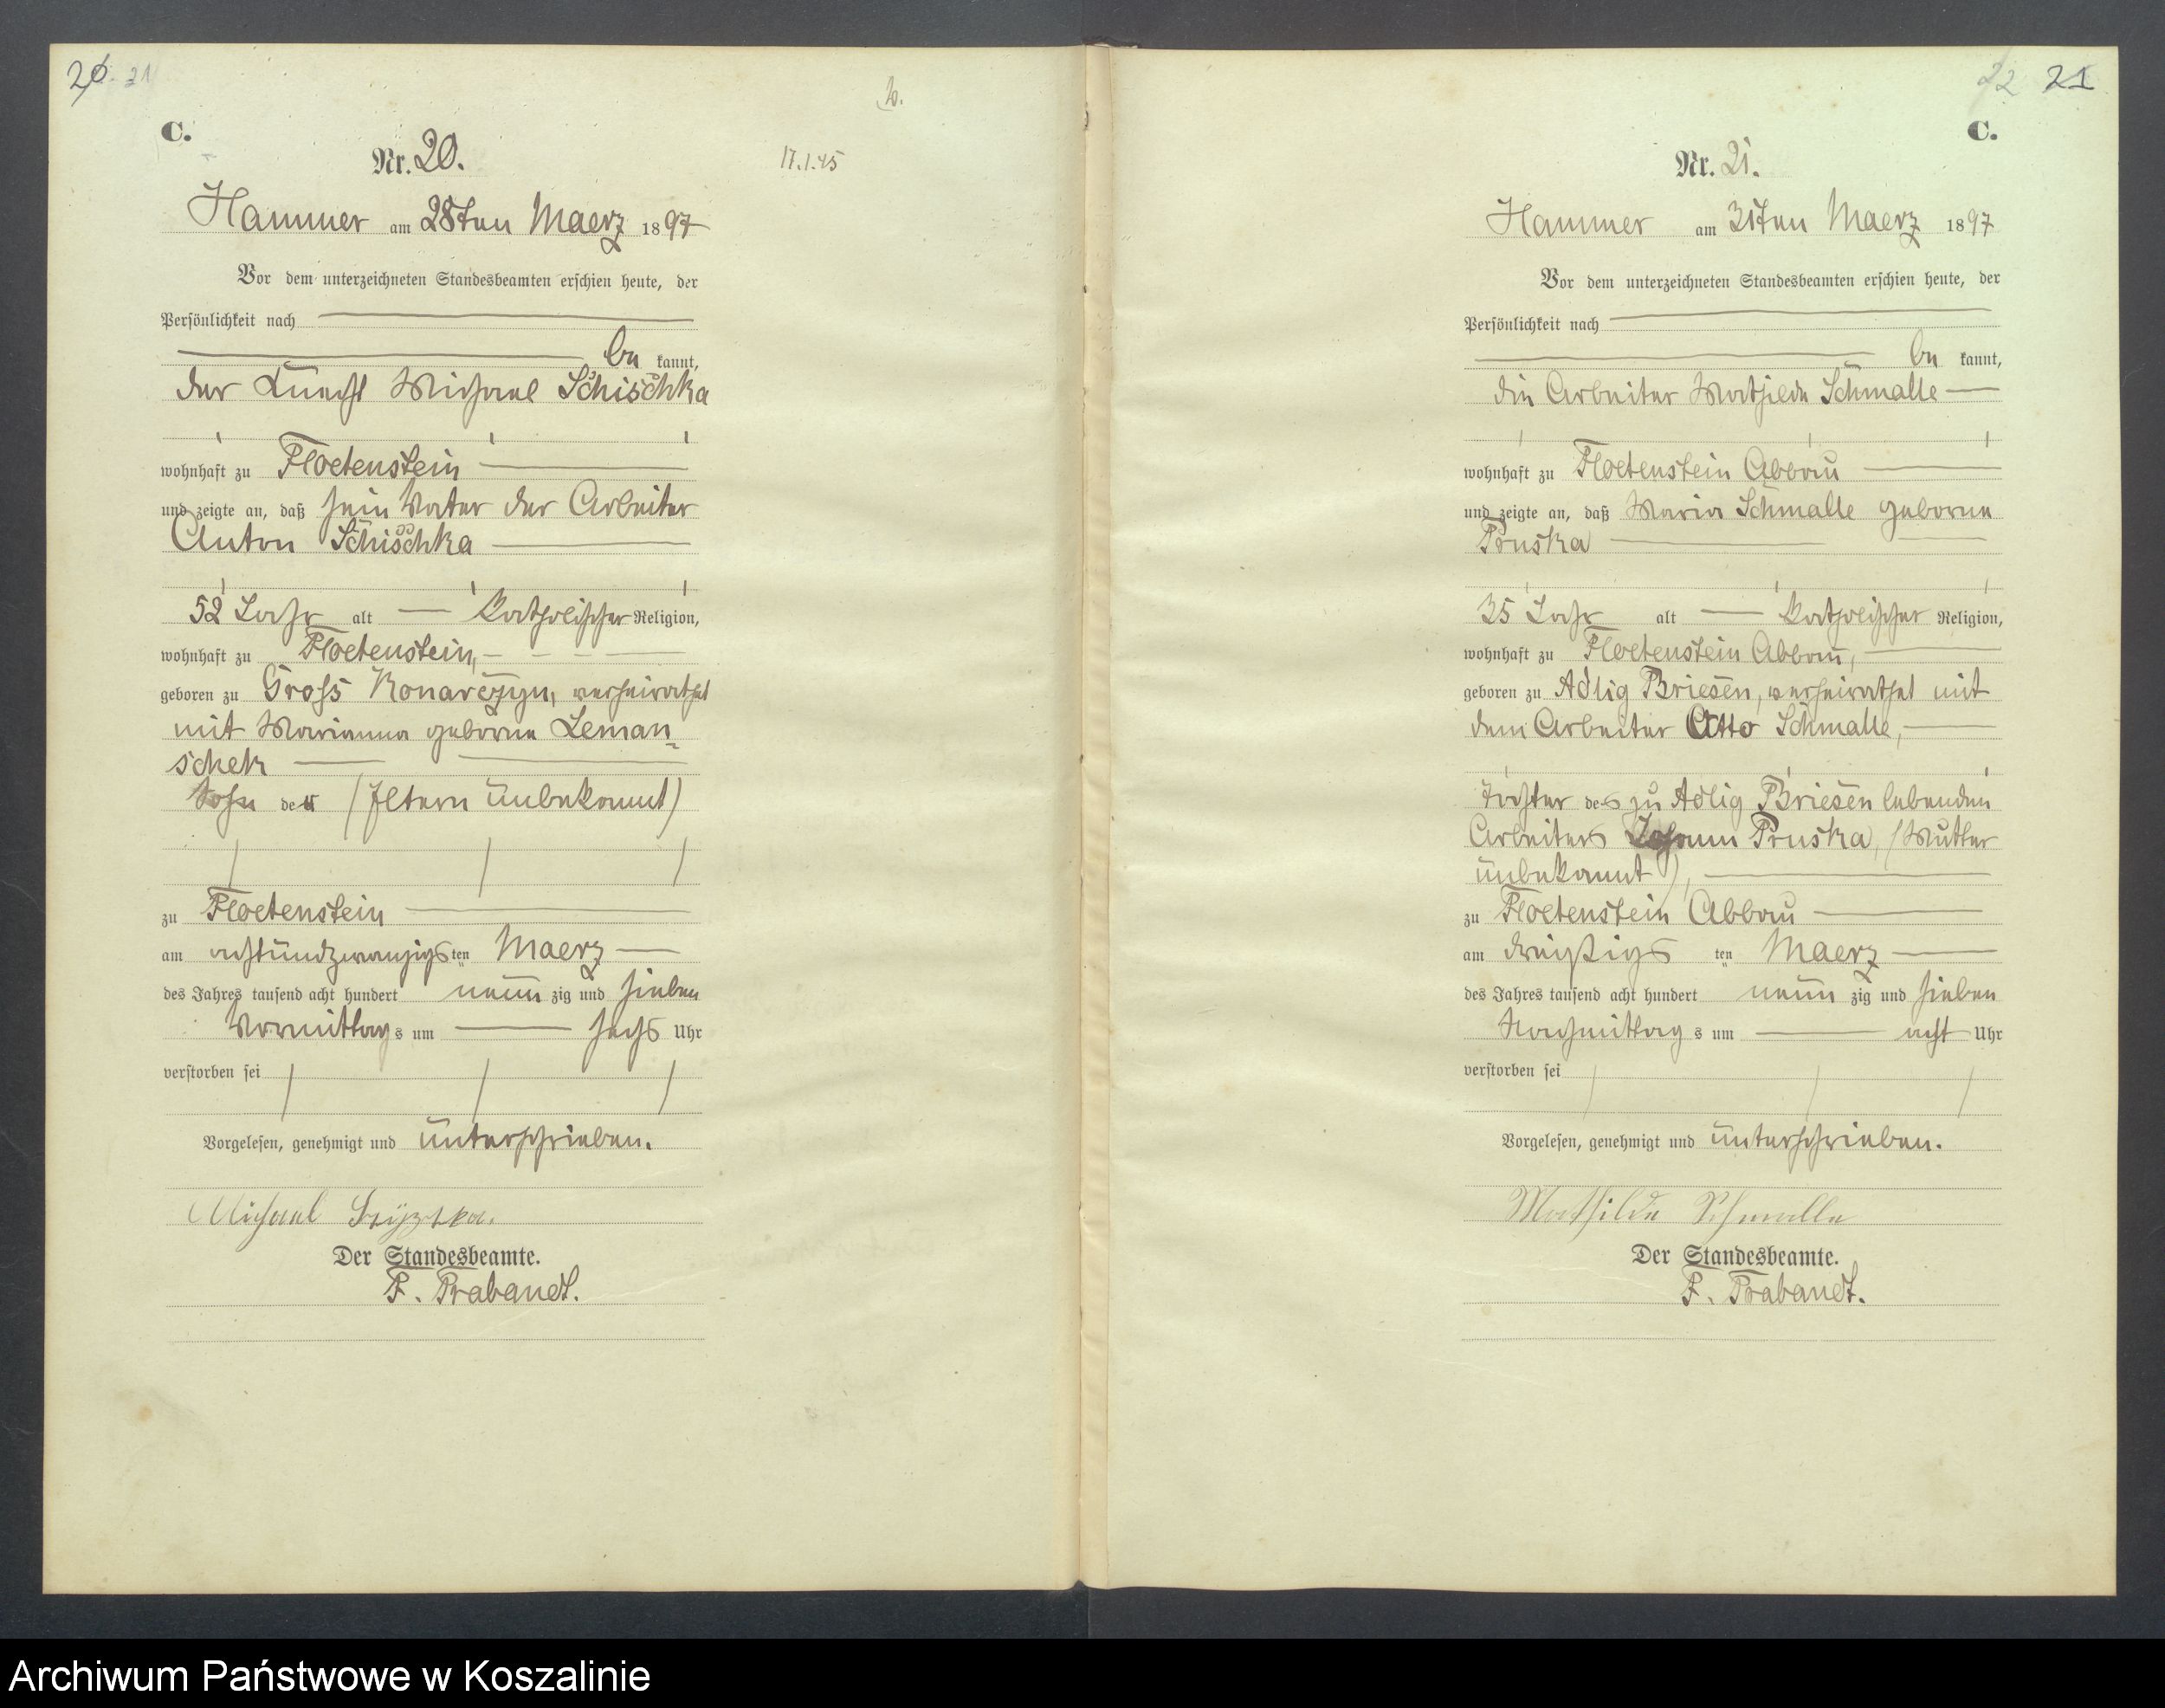 20. 21
C.
Nr. 20.
17.1.45
Hammer am 28ten Maerz 1897
Vor dem unterzeichneten Standesbeamten erschien heute, der
Persönlichkeit nach
be kannt,
der Knecht Michael Schischka
wohnhaft zu Floetenstein
und zeigte an, daß sein Vater der Arbeiter
Anton Schischka
52 Jahr alt katholischer Religion,
wohnhaft zu Floetenstein,
geboren zu Gross Konarczyn, verheirathet
mit Marianna geborne Leman=
schek
Sohn der (Eltern unbekannt)
zu Floetenstein
am achtundzwanzigsten Maerz
des Jahres tausend acht hundert neun zig und sieben
Vormittags um sechs Uhr
verstorben sei
Vorgelesen, genehmigt und unterschrieben.
Michael
Der Standesbeamte.
F. Prabandt.
22 21
C.
Nr. 21.
Hammer am 31ten Maerz 1897
Vor dem unterzeichneten Standesbeamten erschien heute, der
Persönlichkeit nach
be kannt,
die Arbeiter Mathilde Schmalle
wohnhaft zu Floetenstein Abbau
und zeigte an, daß Maria Schmalle geborne
Pruska
35 Jahr alt katholischer Religion,
wohnhaft zu Floetenstein Abbau,
geboren zu Adlig Briesen, verheirathet mit
dem Arbeiter Otto Schmalle,
Tochter des zu Adlig Briesen lebenden
Arbeiters Johann Pruska, (Mutter
unbekannt),
zu Floetenstein Abbau
am dreißigsten Maerz
des Jahres tausend acht hundert neun zig und sieben
Nachmittags um acht Uhr
verstorben sei
Vorgelesen, genehmigt und unterschrieben.
Mathilde Schmalle
Der Standesbeamte.
F. Prabandt.
Archiwum Państwowe w Koszalinie